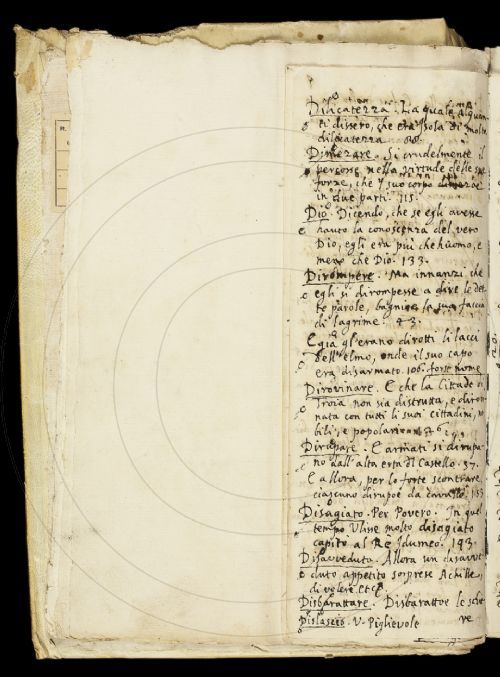 Dilicatezza. La quale alquan-
ti dissero, che era Isola di molta
dilicatezza. 88.
Dimezare. Si crudelmente il
percosse nella virtude delle sue
forze, che 'l suo corpo dimezzò
in due parti. 115.
Dio. Dicendo, che se egli avesse
hauto la conoscenza del vero
Dio, egli era più che huomo, e
meno che Dio. 133.
Dirompere. Ma innanzi che
egli si dirompesse a dire le det-
te parole, bagnò la sua faccia
di lagrime. 43.
E già gl'erano dirotti li lacci
dell'elmo, onde il suo capo
era disarmato. 106. forse nome
Dirovinare. E che la Cittade di
Troia non sia distrutta, e diroui-
nata con tutti li suoi cittadini, no
bili, e popolari
Dirupare. E armati si dirupa-
no dall'alta erta del Castello. 37.
E allora, per lo forte scontrare,
ciascuno dirupoe da cavallo. 153
Disagiato. Per Povero. In quel
tempo Ulisse molto disagiato
capitò al Re Idumeo. 143.
Disavveduto. Allora un disavve-
duto appetito sorprese Achille,
di volere etc.
Disbarattare. Disbarattoe le schie
re
Dislascio. V. Piglievole